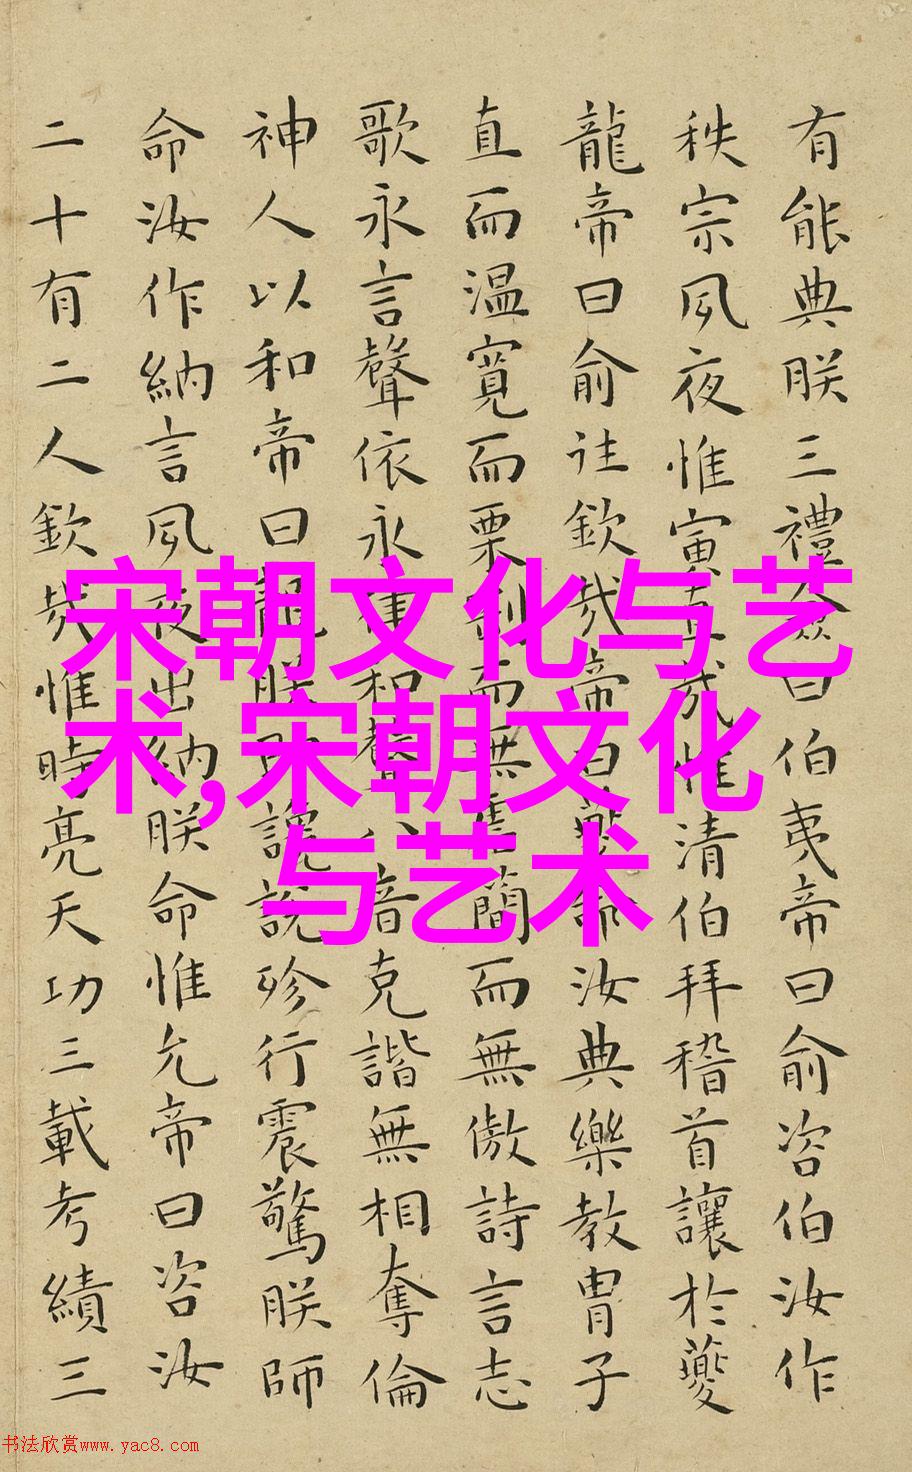 有能典朕三禮僉曰伯夷帝曰俞咨伯汝作
秩宗夙夜惟寅直哉惟清伯拜稽首讓於夔
龍帝曰俞往欽哉帝曰夔命汝典樂教冑子
直而温寬而栗剛而無虐簡而無傲詩言志
歌永言聲依永律和聲八音克諧無相奪倫
神人以和帝曰龍朕讒說殄行震驚朕師
命汝作納言夙夜出納朕命惟允帝曰咨汝
二十有二人欽哉惟時亮天功三載考績三
宋朝文化与艺
术,宋朝文化
与艺术
书法欣赏www.yac8.com